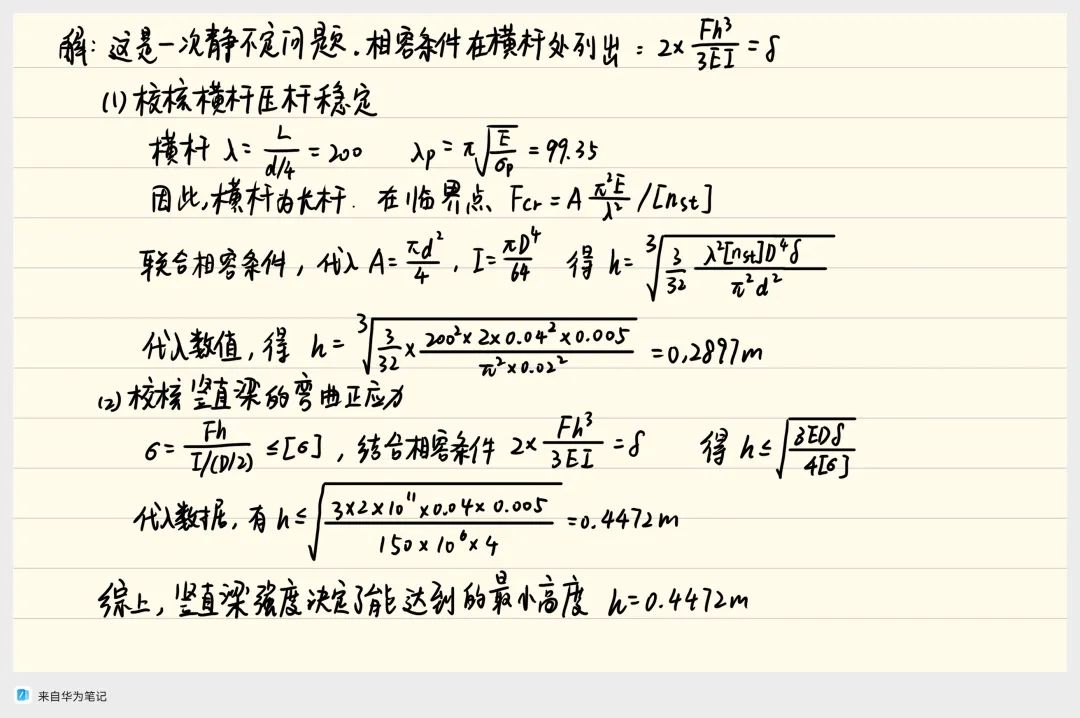 解：这是一次静不定问题．相容条件在横杆处列出：2×Fh³/3EI=δ
(1)校核横杆压杆稳定
横杆 λ=L/(d/4)=200 λp=π√(E/σp)=99.35
因此，横杆为长杆． 在临界点 Fcr=A π²E/λ²/[nst]
联合相容条件，代入 A=πd²/4，I=πD⁴/64 得 h=³√(3/32 λ²[nst]D⁴δ/π²d²)
代入数值，得 h=³√(3/32×200²×2×0.04²×0.005/π²×0.02²)=0.2897m
(2)校核竖直梁的弯曲正应力
σ=Fh/(I/(D/2))≤[σ]，结合相容条件 2×Fh³/3EI=δ 得 h≤√(3EDδ/4[σ])
代入数据，有 h≤√(3×2×10¹¹×0.04×0.005/150×10⁶×4)=0.4472m
综上，竖直梁强度决定了能达到的最小高度 h=0.4472m
来自华为笔记